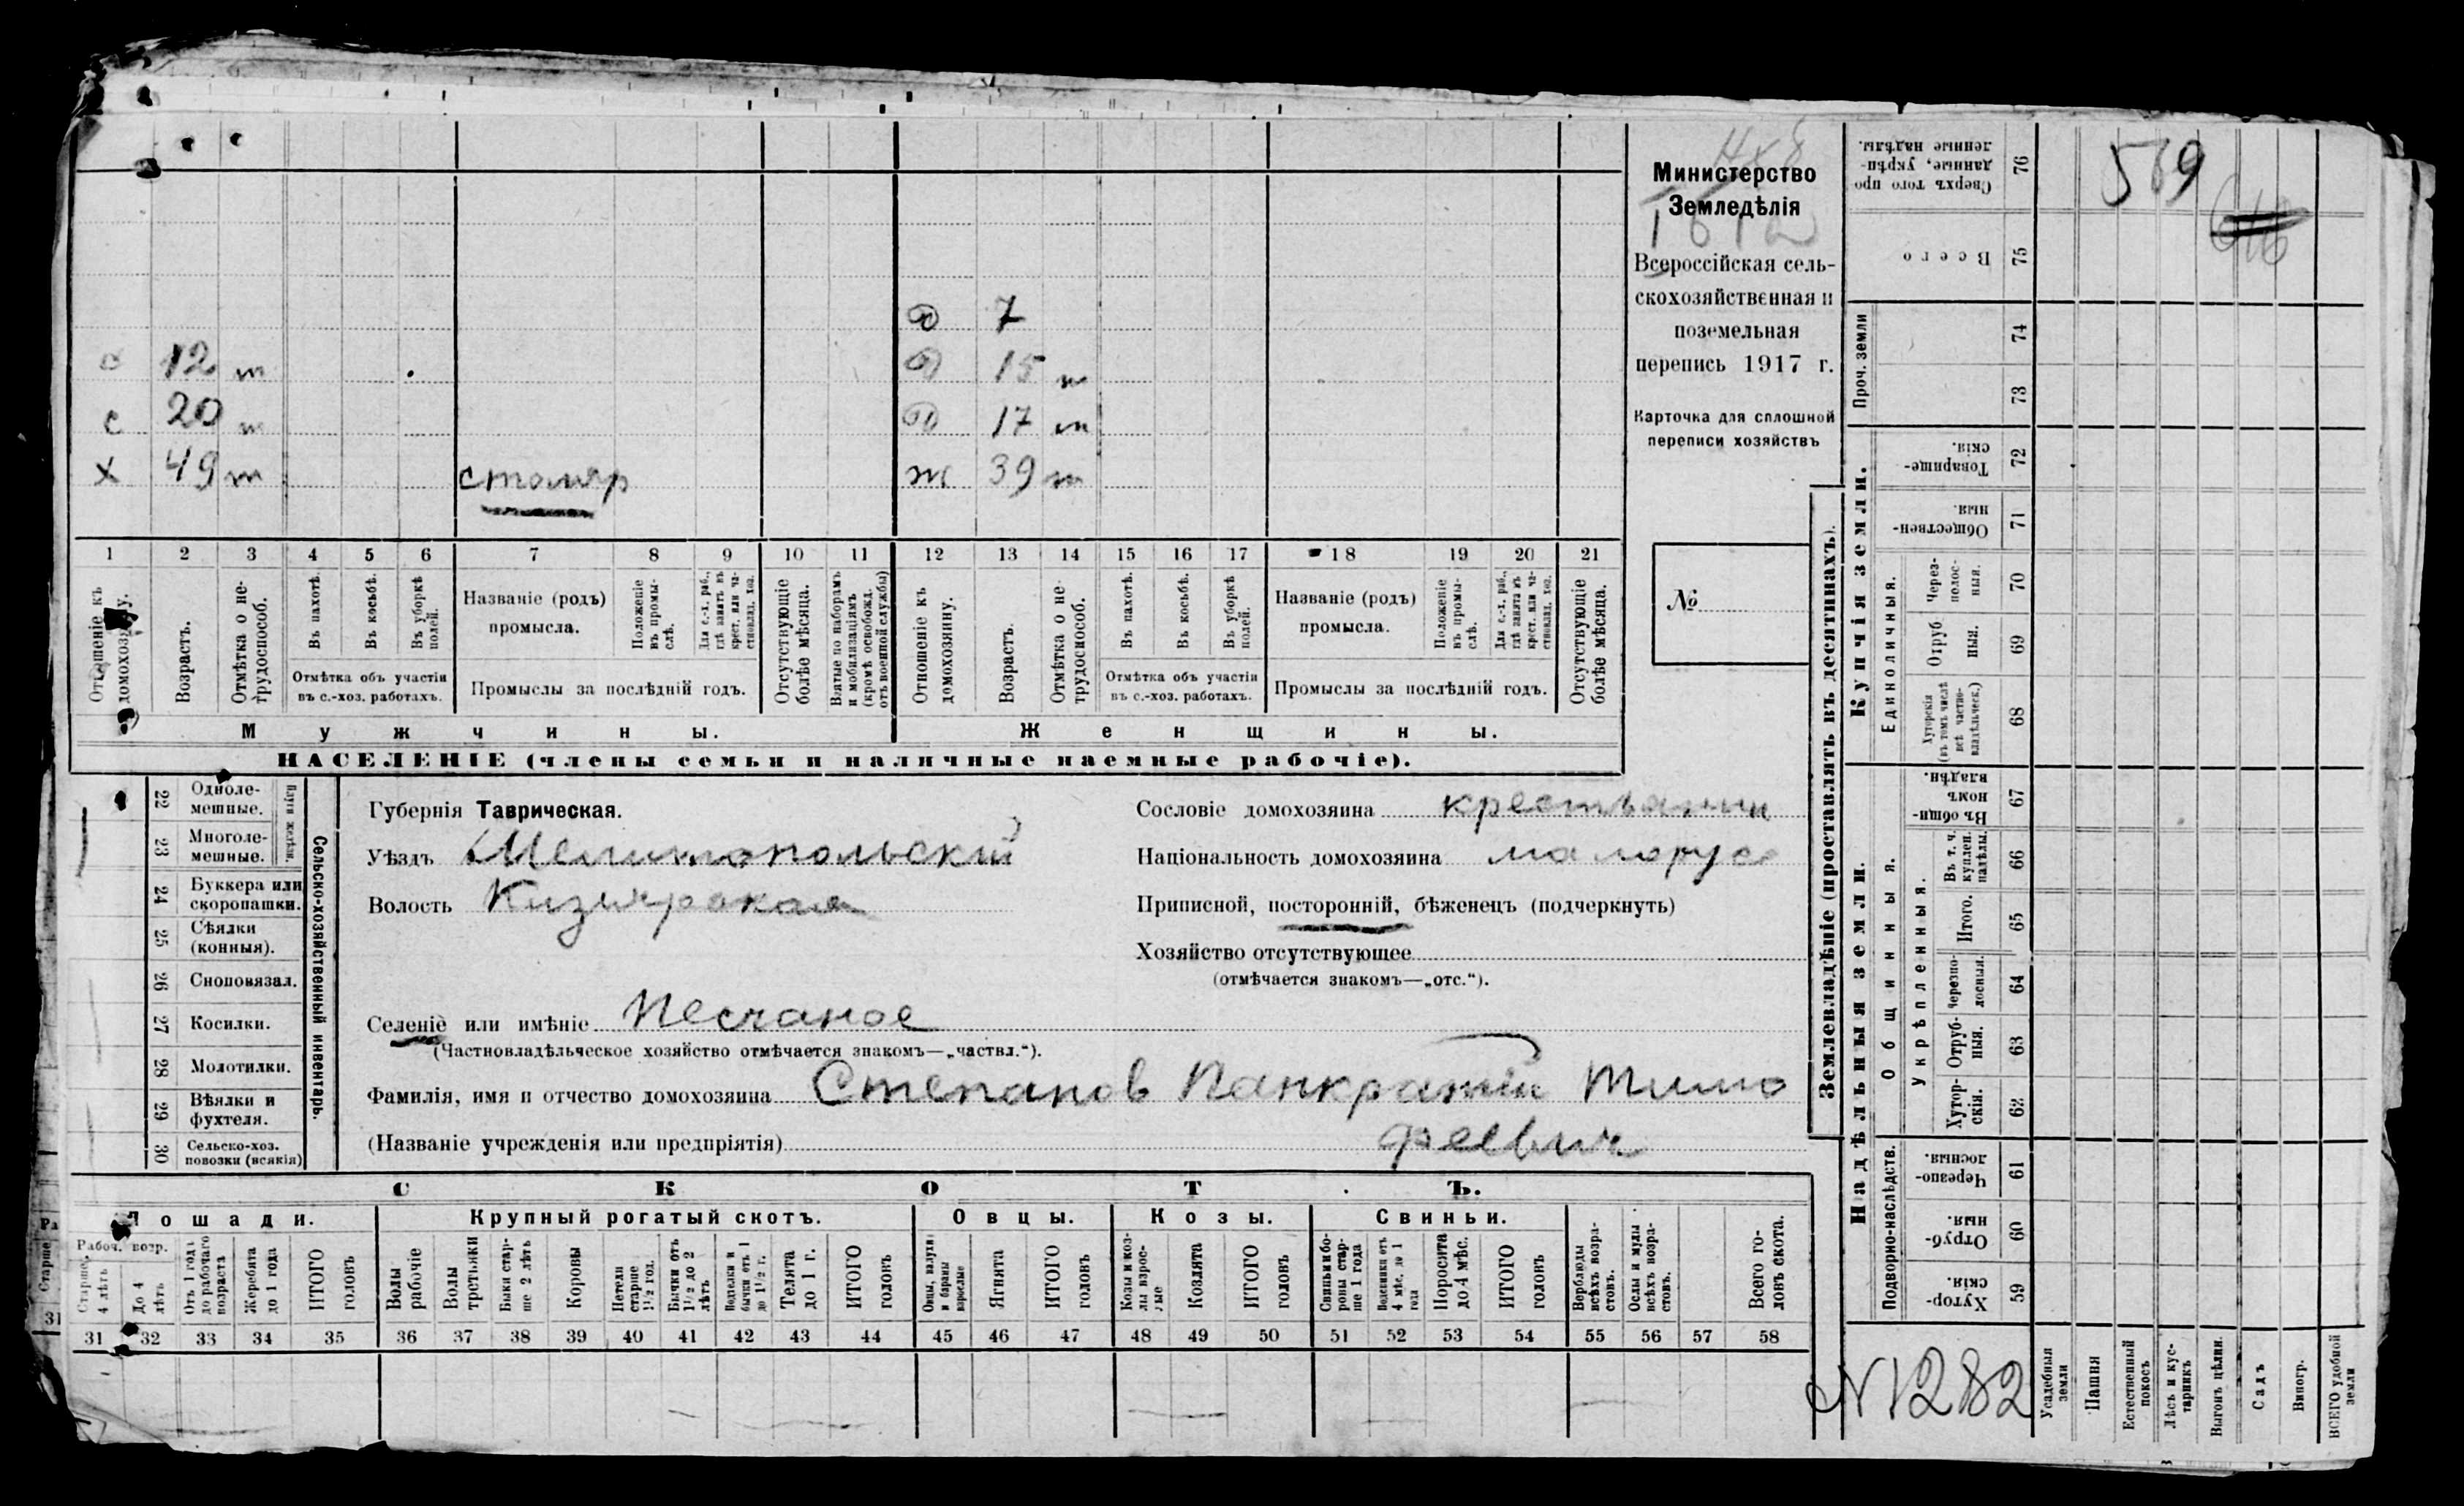 Министерство
Земледѣлія
Всероссійская сель-
скохозяйственная и
поземельная
перепись 1917 г.
Карточка для сплошной
переписи хозяйствъ
№
569
646
д 7
12 т
д 15 т
с 20 т
д 17 т
х 49 т столяр
ж 39 т
1 2 3 4 5 6 7 8 9 10 11 12 13 14 15 16 17 18 19 20 21
Отношеніе къ домохозяину.
Возрастъ.
Отмѣтка о не-трудоспособ.
Въ пахотѣ.
Въ косьбѣ.
Въ уборкѣ полей.
Отмѣтка объ участіи
въ с.-хоз. работахъ.
Названіе (родъ)
промысла.
Положеніе въ промы-слѣ.
Для с.-х. раб., гдѣ занятъ въ крест. или ча-стновлад. хоз.
Промыслы за послѣдній годъ.
Отсутствующіе болѣе мѣсяца.
Взятые по наборамъ и мобилизаціямъ (кромѣ освобожд. отъ военной службы)
Отношеніе къ домохозяину.
Возрастъ.
Отмѣтка о не-трудоспособ.
Въ пахотѣ.
Въ косьбѣ.
Въ уборкѣ полей.
Отмѣтка объ участіи
въ с.-хоз. работахъ.
Названіе (родъ)
промысла.
Положеніе въ промы-слѣ.
Для с.-х. раб., гдѣ занята въ крест. или ча-стновлад. хоз.
Промыслы за послѣдній годъ.
Отсутствующіе болѣе мѣсяца.
Мужчины. Женщины.
НАСЕЛЕНІЕ (члены семьи и наличные наемные рабочіе).
22 Одноле-мешные.
23 Многоле-мешные.
Плуги желѣзн.
24 Буккера или скоропашки.
25 Сѣялки (конныя).
26 Сноповязал.
27 Косилки.
28 Молотилки.
29 Вѣялки и фухтеля.
30 Сельско-хоз. повозки (всякія)
Сельско-хозяйственный инвентарь.
Губернія Таврическая.
Уѣздъ Мелитопольский
Волость Кизиярская
Селеніе или имѣніе Песчаное
(Частновладѣльческое хозяйство отмѣчается знакомъ—„частвл.“).
Фамилія, имя и отчество домохозяина Степанов Панкратий Тимо
феевич
(Названіе учрежденія или предпріятія)
Сословіе домохозяина крестьянин
Національность домохозяина малорус
Приписной, посторонній, бѣженецъ (подчеркнуть)
Хозяйство отсутствующее
(отмѣчается знакомъ—„отс.“).
СКОТЪ.
Лошади. Крупный рогатый скотъ. Овцы. Козы. Свиньи.
Рабоч. возр.
Старше 4 лѣтъ
До 4 лѣтъ
Отъ 1 года до рабочаго возраста
Жеребята до 1 года
ИТОГО головъ
Волы рабочіе
Волы третьяки
Быки стар-ше 2 лѣтъ
Коровы
Нетели старше 1½ год.
Бычки отъ 1½ до 2 лѣтъ
Телята до 1 г.
ИТОГО головъ
Ягнята
ИТОГО головъ
Козы и коз-лы взрос-лые
Козлята
ИТОГО головъ
Свиньи и бо-ровы стар-ше 1 года
Подсвинки отъ 4 мѣс. до 1 года
Поросята до 4 мѣс.
ИТОГО головъ
Верблюды всѣхъ возра-стовъ.
Ослы и мулы всѣхъ возра-стовъ.
Всего го-ловъ скота.
31 32 33 34 35 36 37 38 39 40 41 42 43 44 45 46 47 48 49 50 51 52 53 54 55 56 57 58
Землевладѣніе (проставлять въ десятинахъ).
Купчія земли.
Надѣльныя земли.
Сверхъ того про-данные, укрѣп-ленные надѣлы. 76
Всего 75
Проч. земли
74
73
Товарище-скія. 72
Обществен-ныя. 71
Единоличныя.
Через-полос-ныя. 70
Отруб-ныя. 69
Хуторскія (въ томъ числѣ всѣ частно-владѣльческ.) 68
Общинныя.
Въ общин-номъ владѣн. 67
Укрѣпленныя.
Въ т. ч. куплен. надѣлы. 66
Итого. 65
Черезпо-лосныя. 64
Отруб-ныя. 63
Хутор-скія. 62
Подворно-наслѣдств.
Черезпо-лосныя. 61
Отруб-ныя. 60
Хутор-скія. 59
N 1282
Усадебныя земли
Пашня
Естественный покосъ
Лѣсъ и кус-тарникъ
Выгонъ цѣлин.
Садъ
Виногр.
ВСЕГО удобной земли